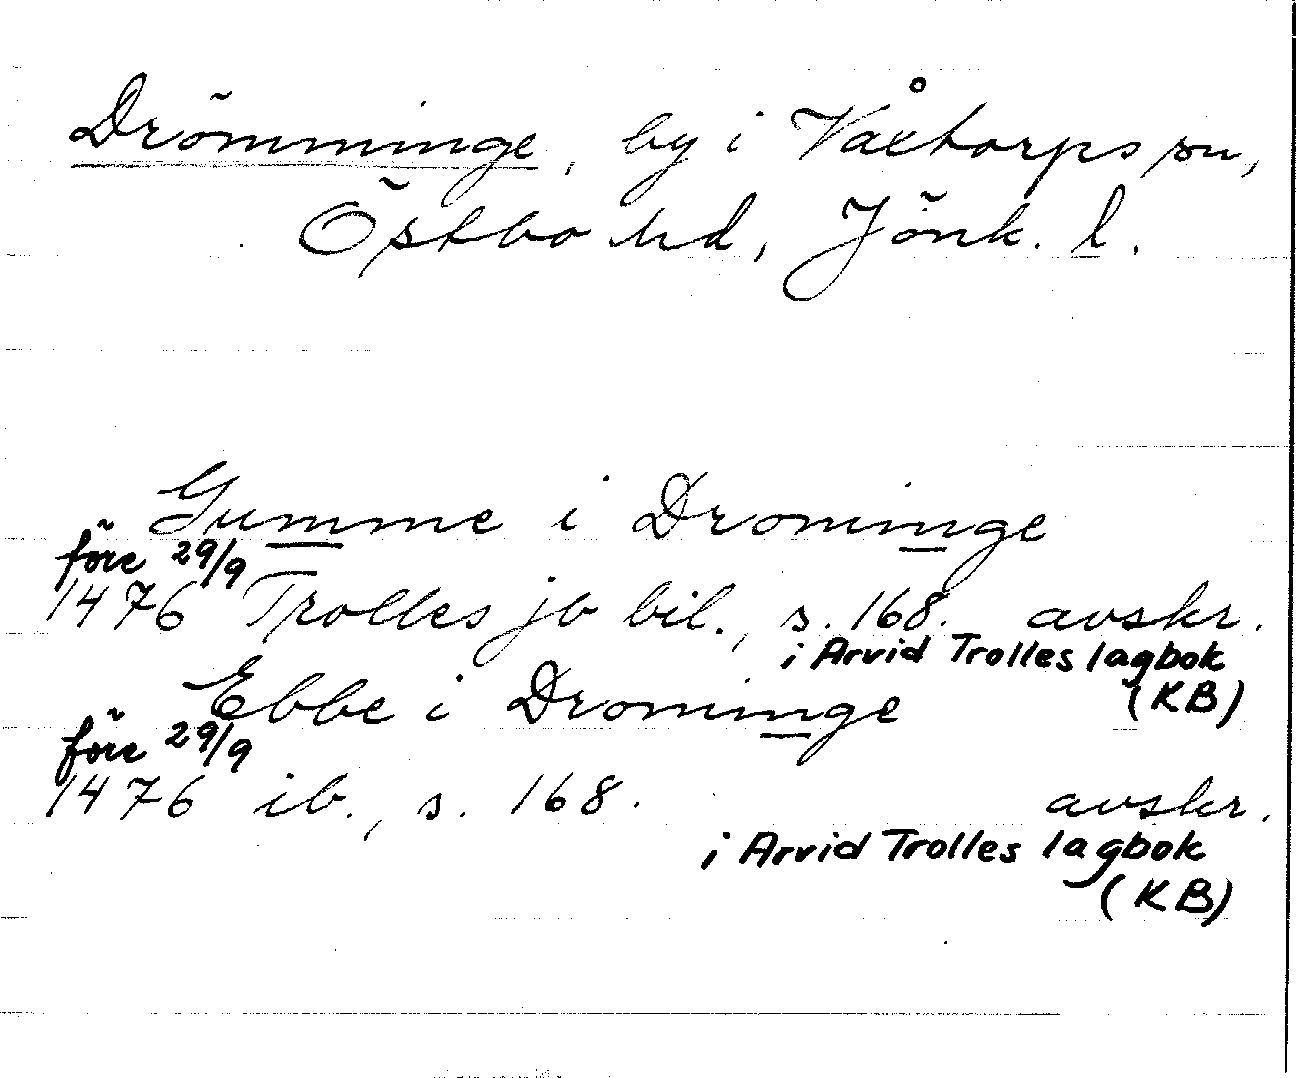 Drömminge, by i Våxtorps sn,
Östbo hd, Jönk. l.
Gumme i Drominge
före 29/9
1476 Trolles jb bil., s. 168. avskr.
i Arvid Trolles lagbok
(KB)
Ebbe i Drominge
före 29/9
1476 ib., s. 168. avskr.
i Arvid Trolles lagbok
(KB)